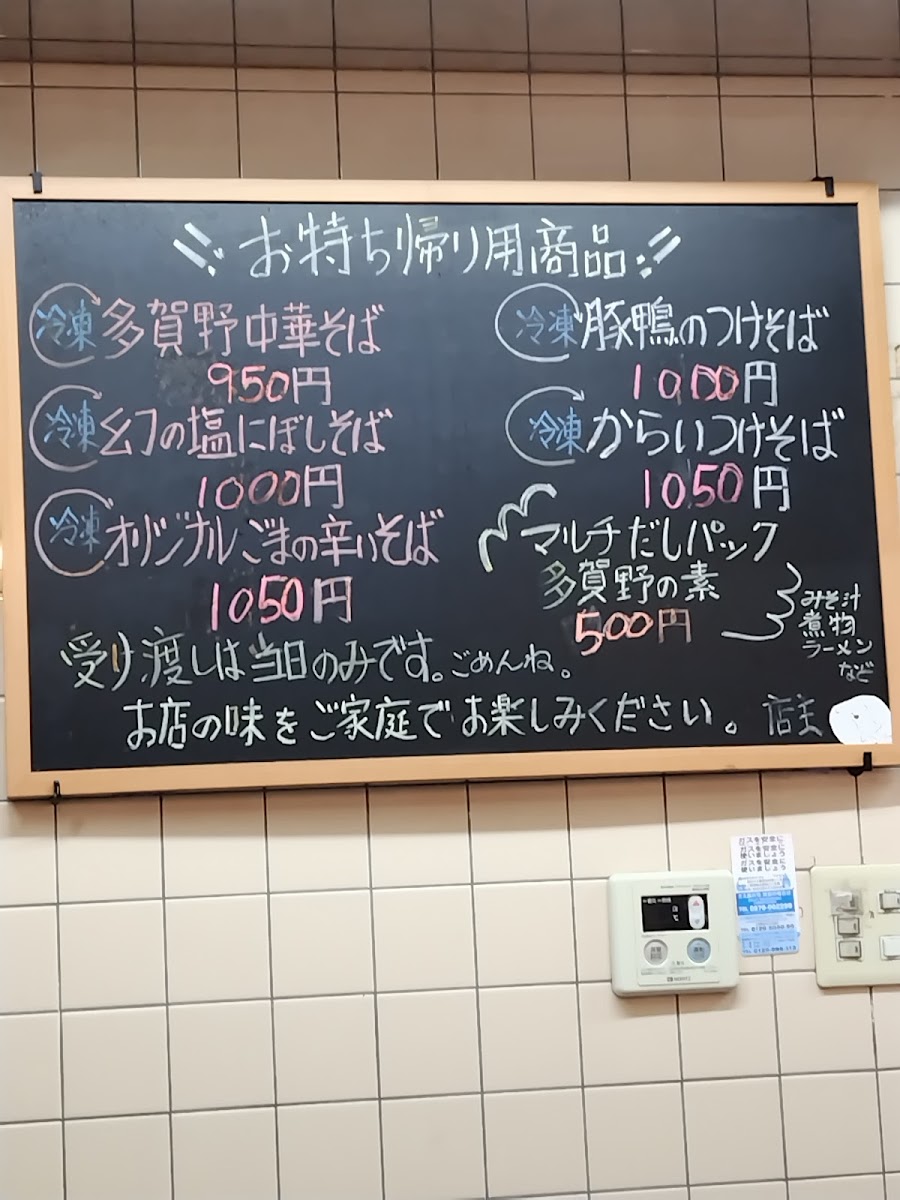 お持ち帰り用商品
冷凍 多賀野中華そば
950円
冷凍 幻の塩にぼしそば
1000円
冷凍 オリジナルごまの辛いそば
1050円
冷凍 豚鴨のつけそば
1000円
冷凍 からいつけそば
1050円
マルチだしパック
多賀野の素
500円
みそ汁
煮物
ラーメン
など
受け渡しは当日のみです。ごめんね。
お店の味をご家庭でお楽しみください。 店主
ガスを安全に
使いましょう